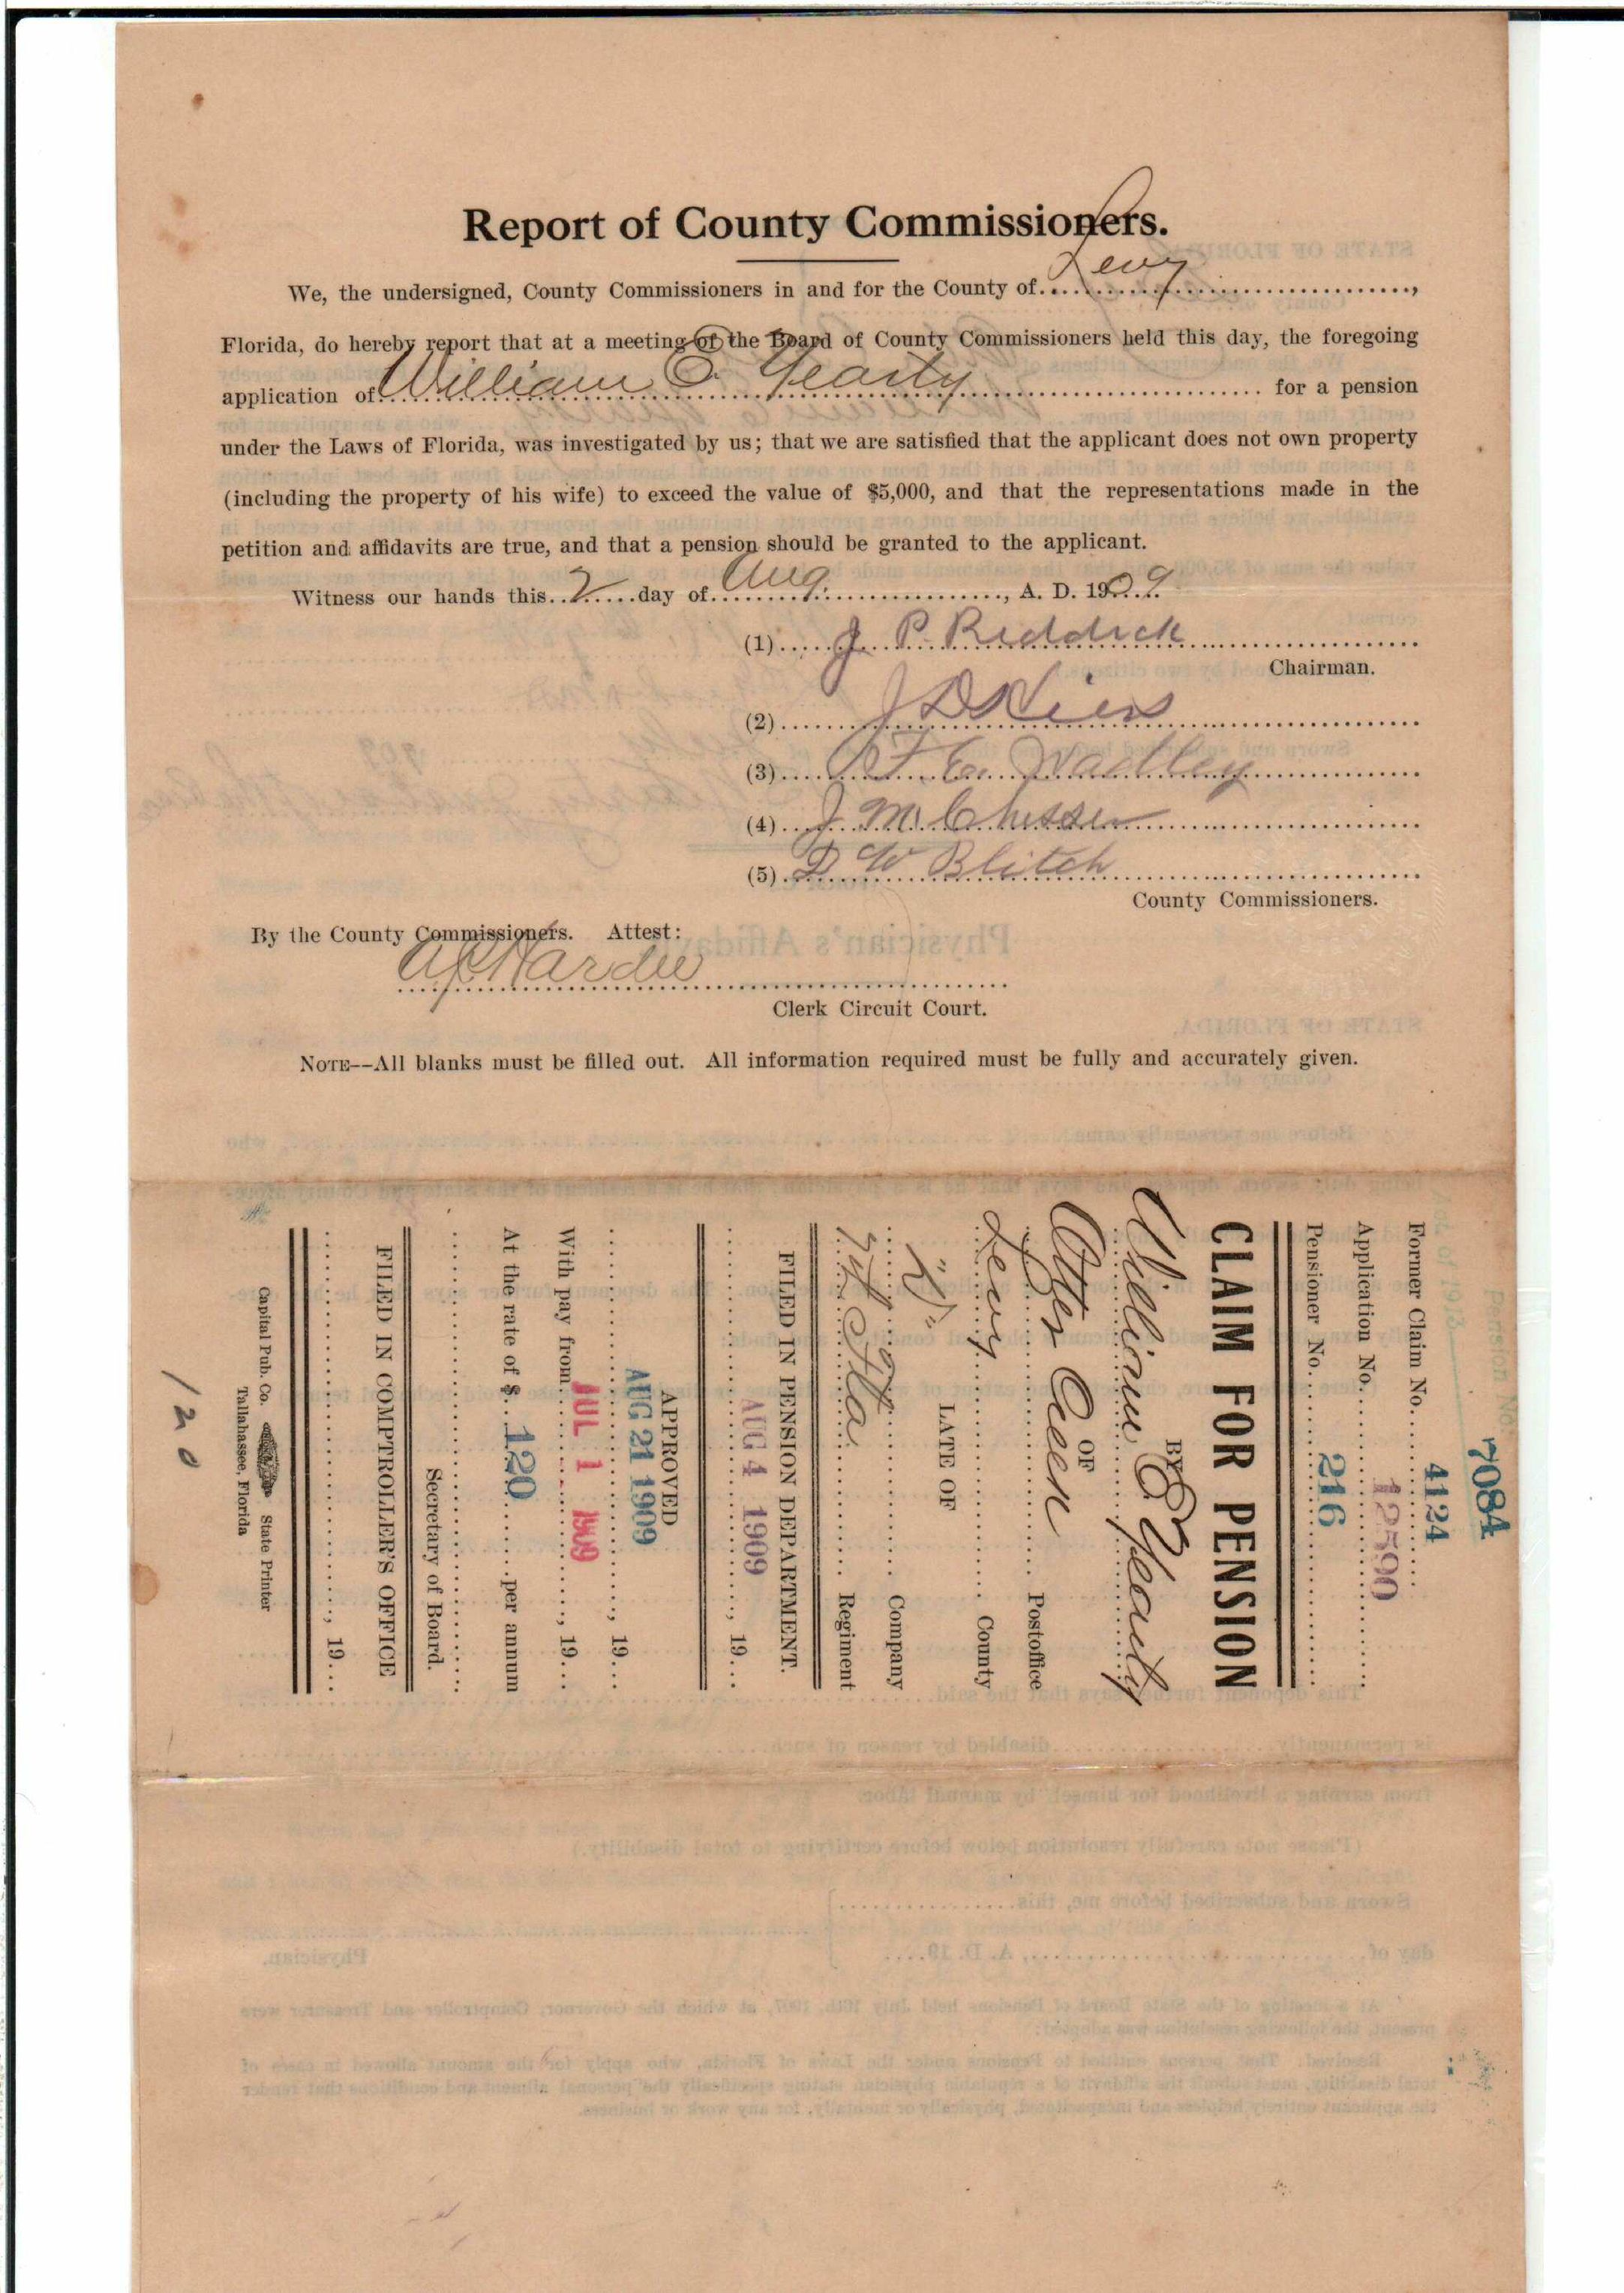 Report of County Commissioners.
We, the undersigned, County Commissioners in and for the County of Levy,
Florida, do hereby report that at a meeting of the Board of County Commissioners held this day, the foregoing
application of William O. Yearty for a pension
under the Laws of Florida, was investigated by us; that we are satisfied that the applicant does not own property
(including the property of his wife) to exceed the value of $5,000, and that the representations made in the
petition and affidavits are true, and that a pension should be granted to the applicant.
Witness our hands this 2 day of Aug., A. D. 1909
(1) J. P. Riddick
Chairman.
(2) J D
(3) Wadley
(4) J. M. Chesser
(5) D W Blitch
County Commissioners.
By the County Commissioners. Attest:
Hardee
Clerk Circuit Court.
NOTE--All blanks must be filled out. All information required must be fully and accurately given.
7084
Former Claim No. 4124
Application No. 12590
Pensioner No. 216
CLAIM FOR PENSION
BY
William O. Yearty
OF
Otter Creek Postoffice
Levy County
LATE OF
"K" Company
Fla. Regiment
FILED IN PENSION DEPARTMENT.
AUG 4 1909, 19...
APPROVED
AUG 21 1909, 19...
With pay from JUL 1 1909, 19...
At the rate of $ 120 per annum
Secretary of Board.
FILED IN COMPTROLLER'S OFFICE
, 19...
Capital Pub. Co. State Printer
Tallahassee, Florida
120